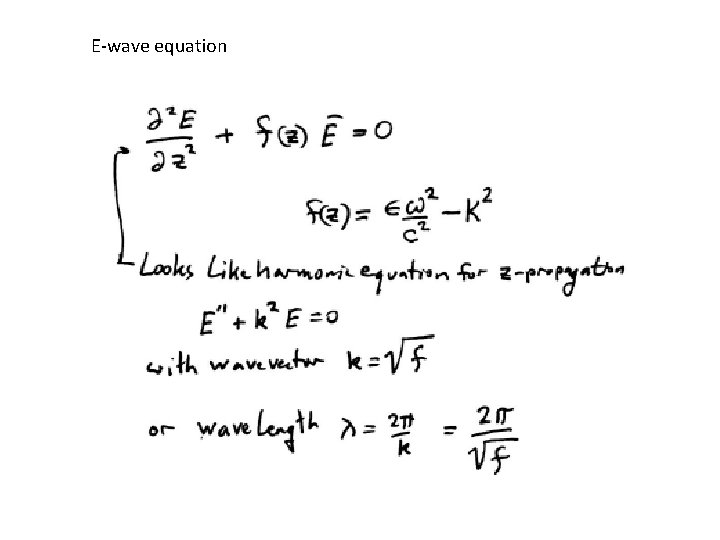 E-wave equation
∂²E/∂z² + f(z) Ē = 0
f(z) = ϵ ω²/c² − K²
Looks like harmonic equation for z-propagation
E'' + k² E = 0
with wavevector k = √f
or wavelength λ = 2π/k = 2π/√f